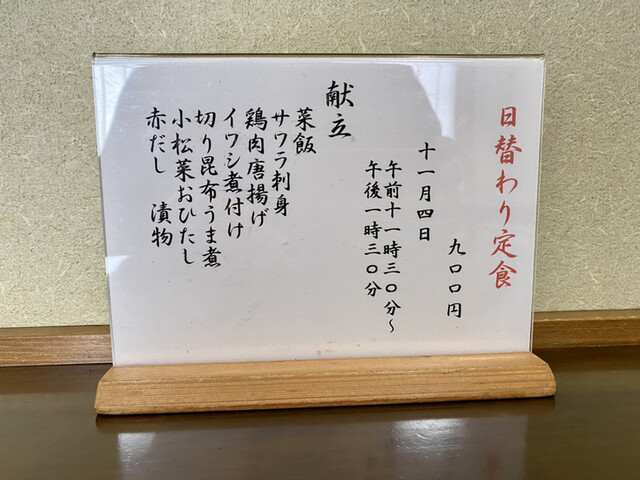 日替わり定食
九〇〇円
十一月四日
午前十一時三〇分〜
午後一時三〇分
献立
菜飯
サワラ刺身
鶏肉唐揚げ
イワシ煮付け
切り昆布うま煮
小松菜おひたし
赤だし 漬物